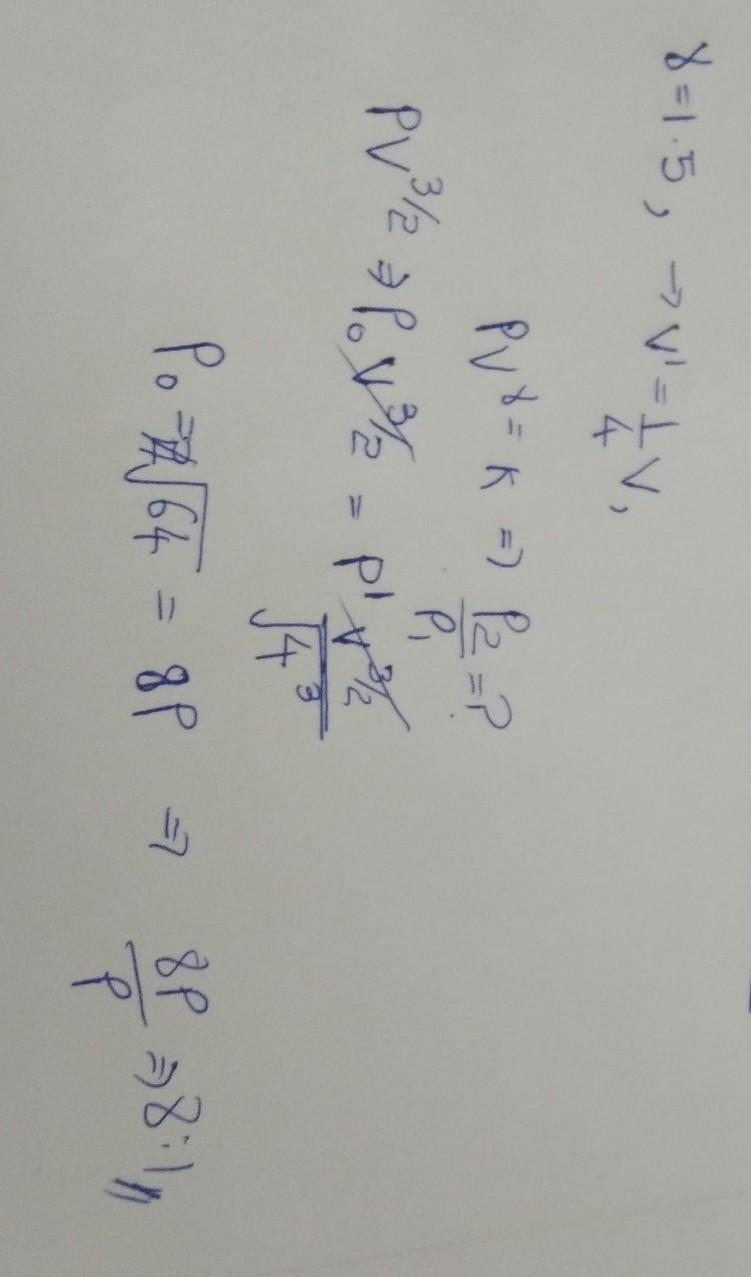 γ = 1.5, → V' = 1/4 V,
PV^γ = K ⇒ P2/P1 = ?
PV^3/2 ⇒ P₀ V^3/2 = P' V^3/2 / √4^3
P₀ = √64 = 8P ⇒ 8P/P ⇒ 8:1